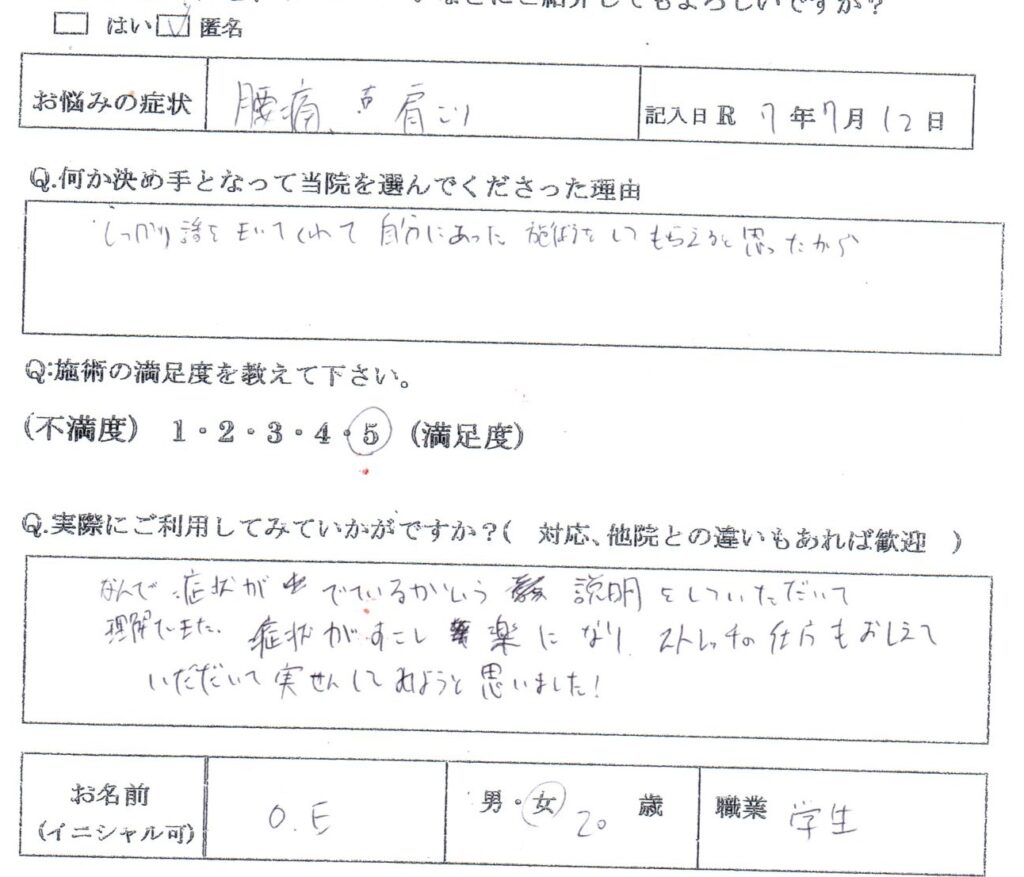 ご紹介してもよろしいですか?
はい 匿名
お悩みの症状 腰痛、肩こり 記入日R 7年7月12日
Q.何か決め手となって当院を選んでくださった理由
しっかり話をきいてくれて自分にあった施術をしてもらえると思ったから
Q:施術の満足度を教えて下さい。
(不満度) 1・2・3・4・5 (満足度)
Q.実際にご利用してみていかがですか?( 対応、他院との違いもあれば歓迎 )
なんで症状がでているかいう説明をしていただいて
理解できた。症状がすこし楽になり ストレッチの仕方もおしえて
いただいて実せんしてみようと思いました!
お名前 O.E 男・女 20 歳 職業 学生
(イニシャル可)